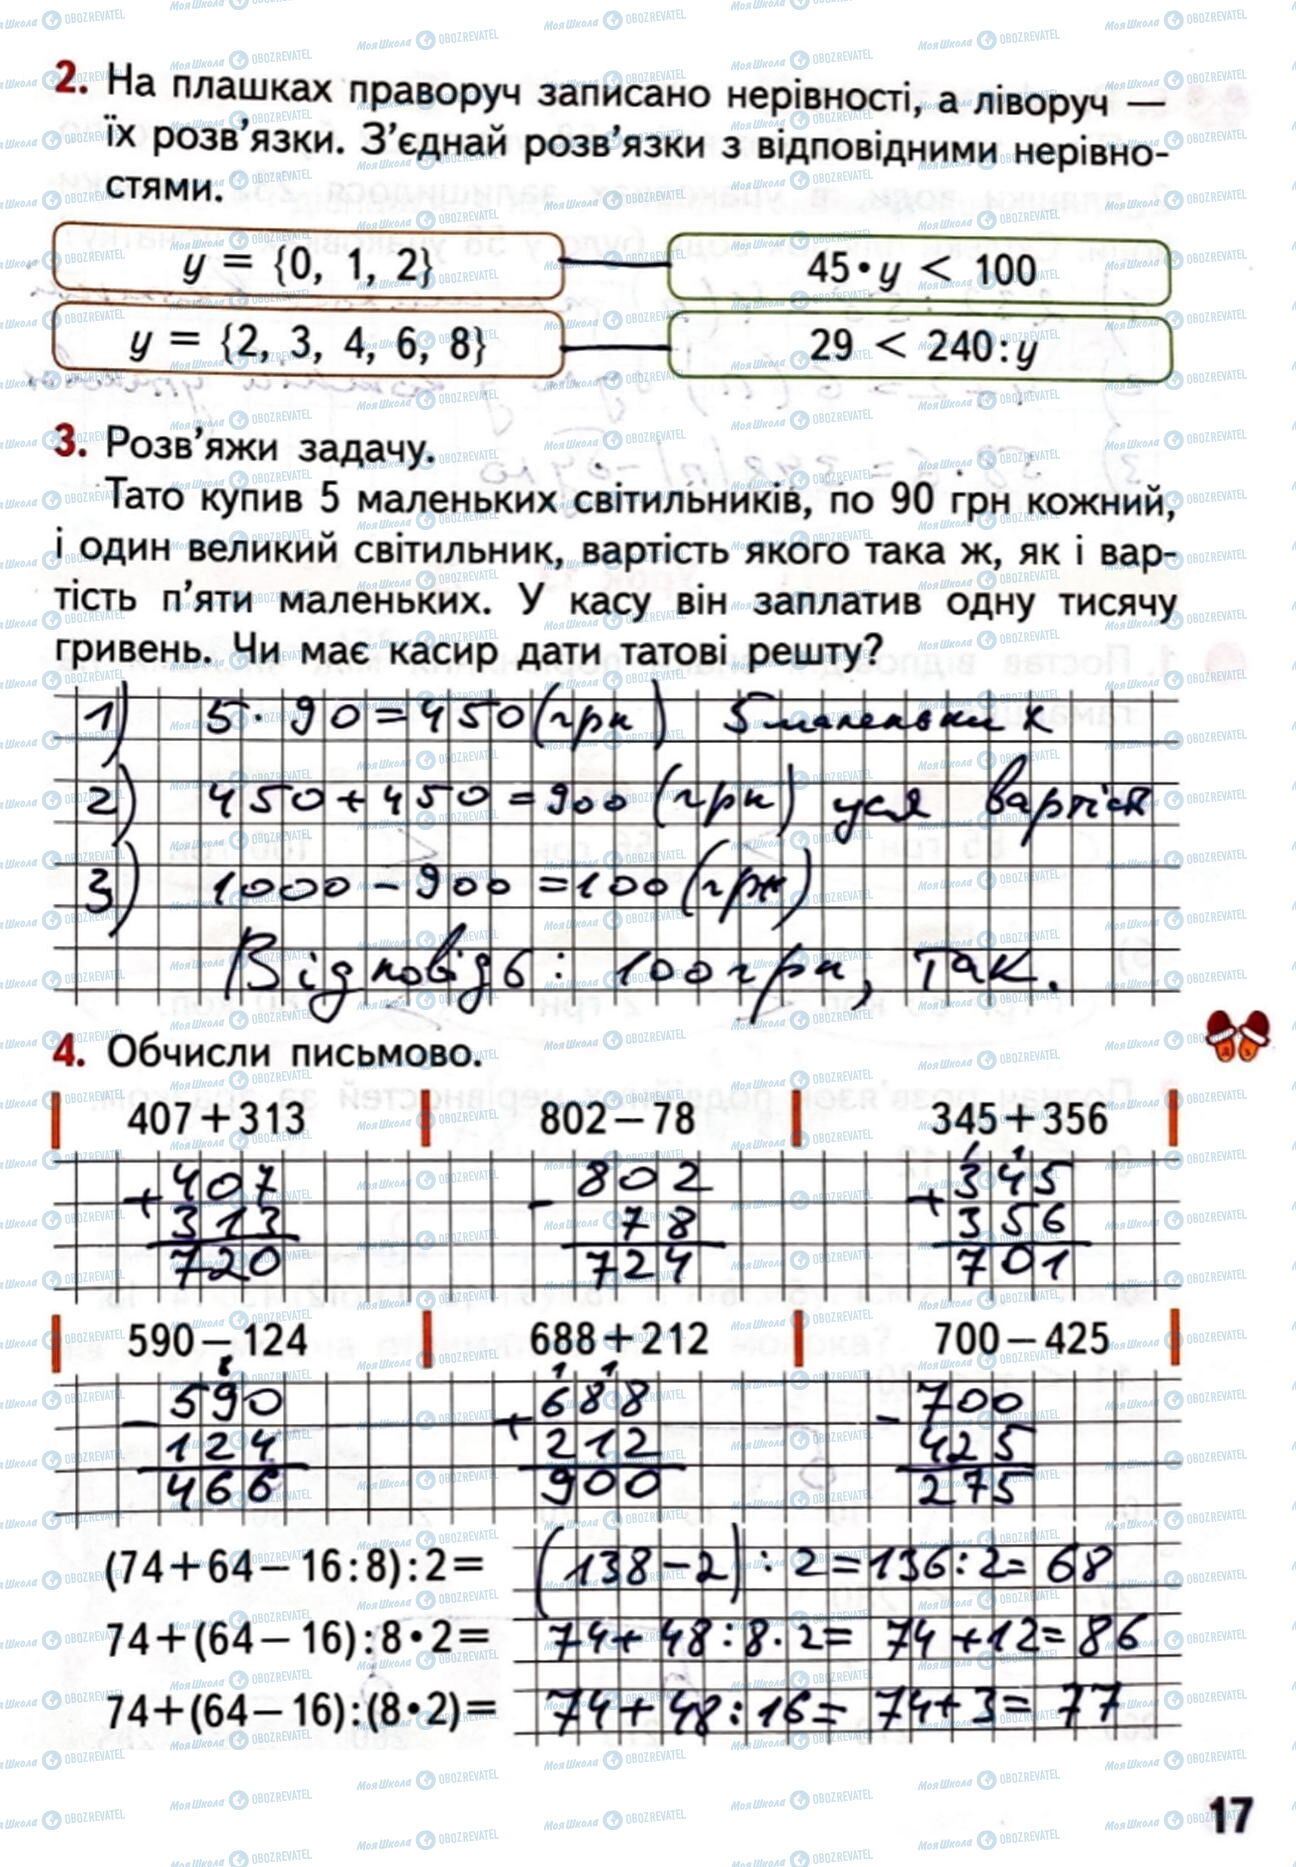 2. На плашках праворуч записано нерівності, а ліворуч —
їх розв’язки. З’єднай розв’язки з відповідними нерівно-
стями.
y = {0, 1, 2}
45•y < 100
y = {2, 3, 4, 6, 8}
29 < 240:y
3. Розв’яжи задачу.
Тато купив 5 маленьких світильників, по 90 грн кожний,
і один великий світильник, вартість якого така ж, як і вар-
тість п’яти маленьких. У касу він заплатив одну тисячу
гривень. Чи має касир дати татові решту?
1) 5·90=450(грн) 5 маленьких
2) 450+450=900 (грн) уся вартіст
3) 1000-900=100(грн)
Відповідь: 100 грн, так.
4. Обчисли письмово.
407+313 802−78 345+356
407 802 345
+ 313 - 78 + 356
720 724 701
590−124 688+212 700−425
590 688 700
- 124 + 212 - 425
466 900 275
(74+64−16:8):2= (138-2):2=136:2=68
74+(64−16):8•2= 74+48:8·2=74+12=86
74+(64−16):(8•2)= 74+48:16=74+3=77
17
МояШкола OBOZREVATEL